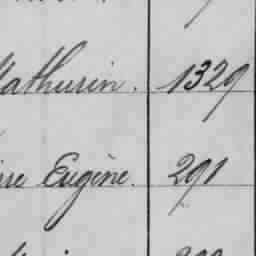 Mathurin. 1329
Eugène. 291